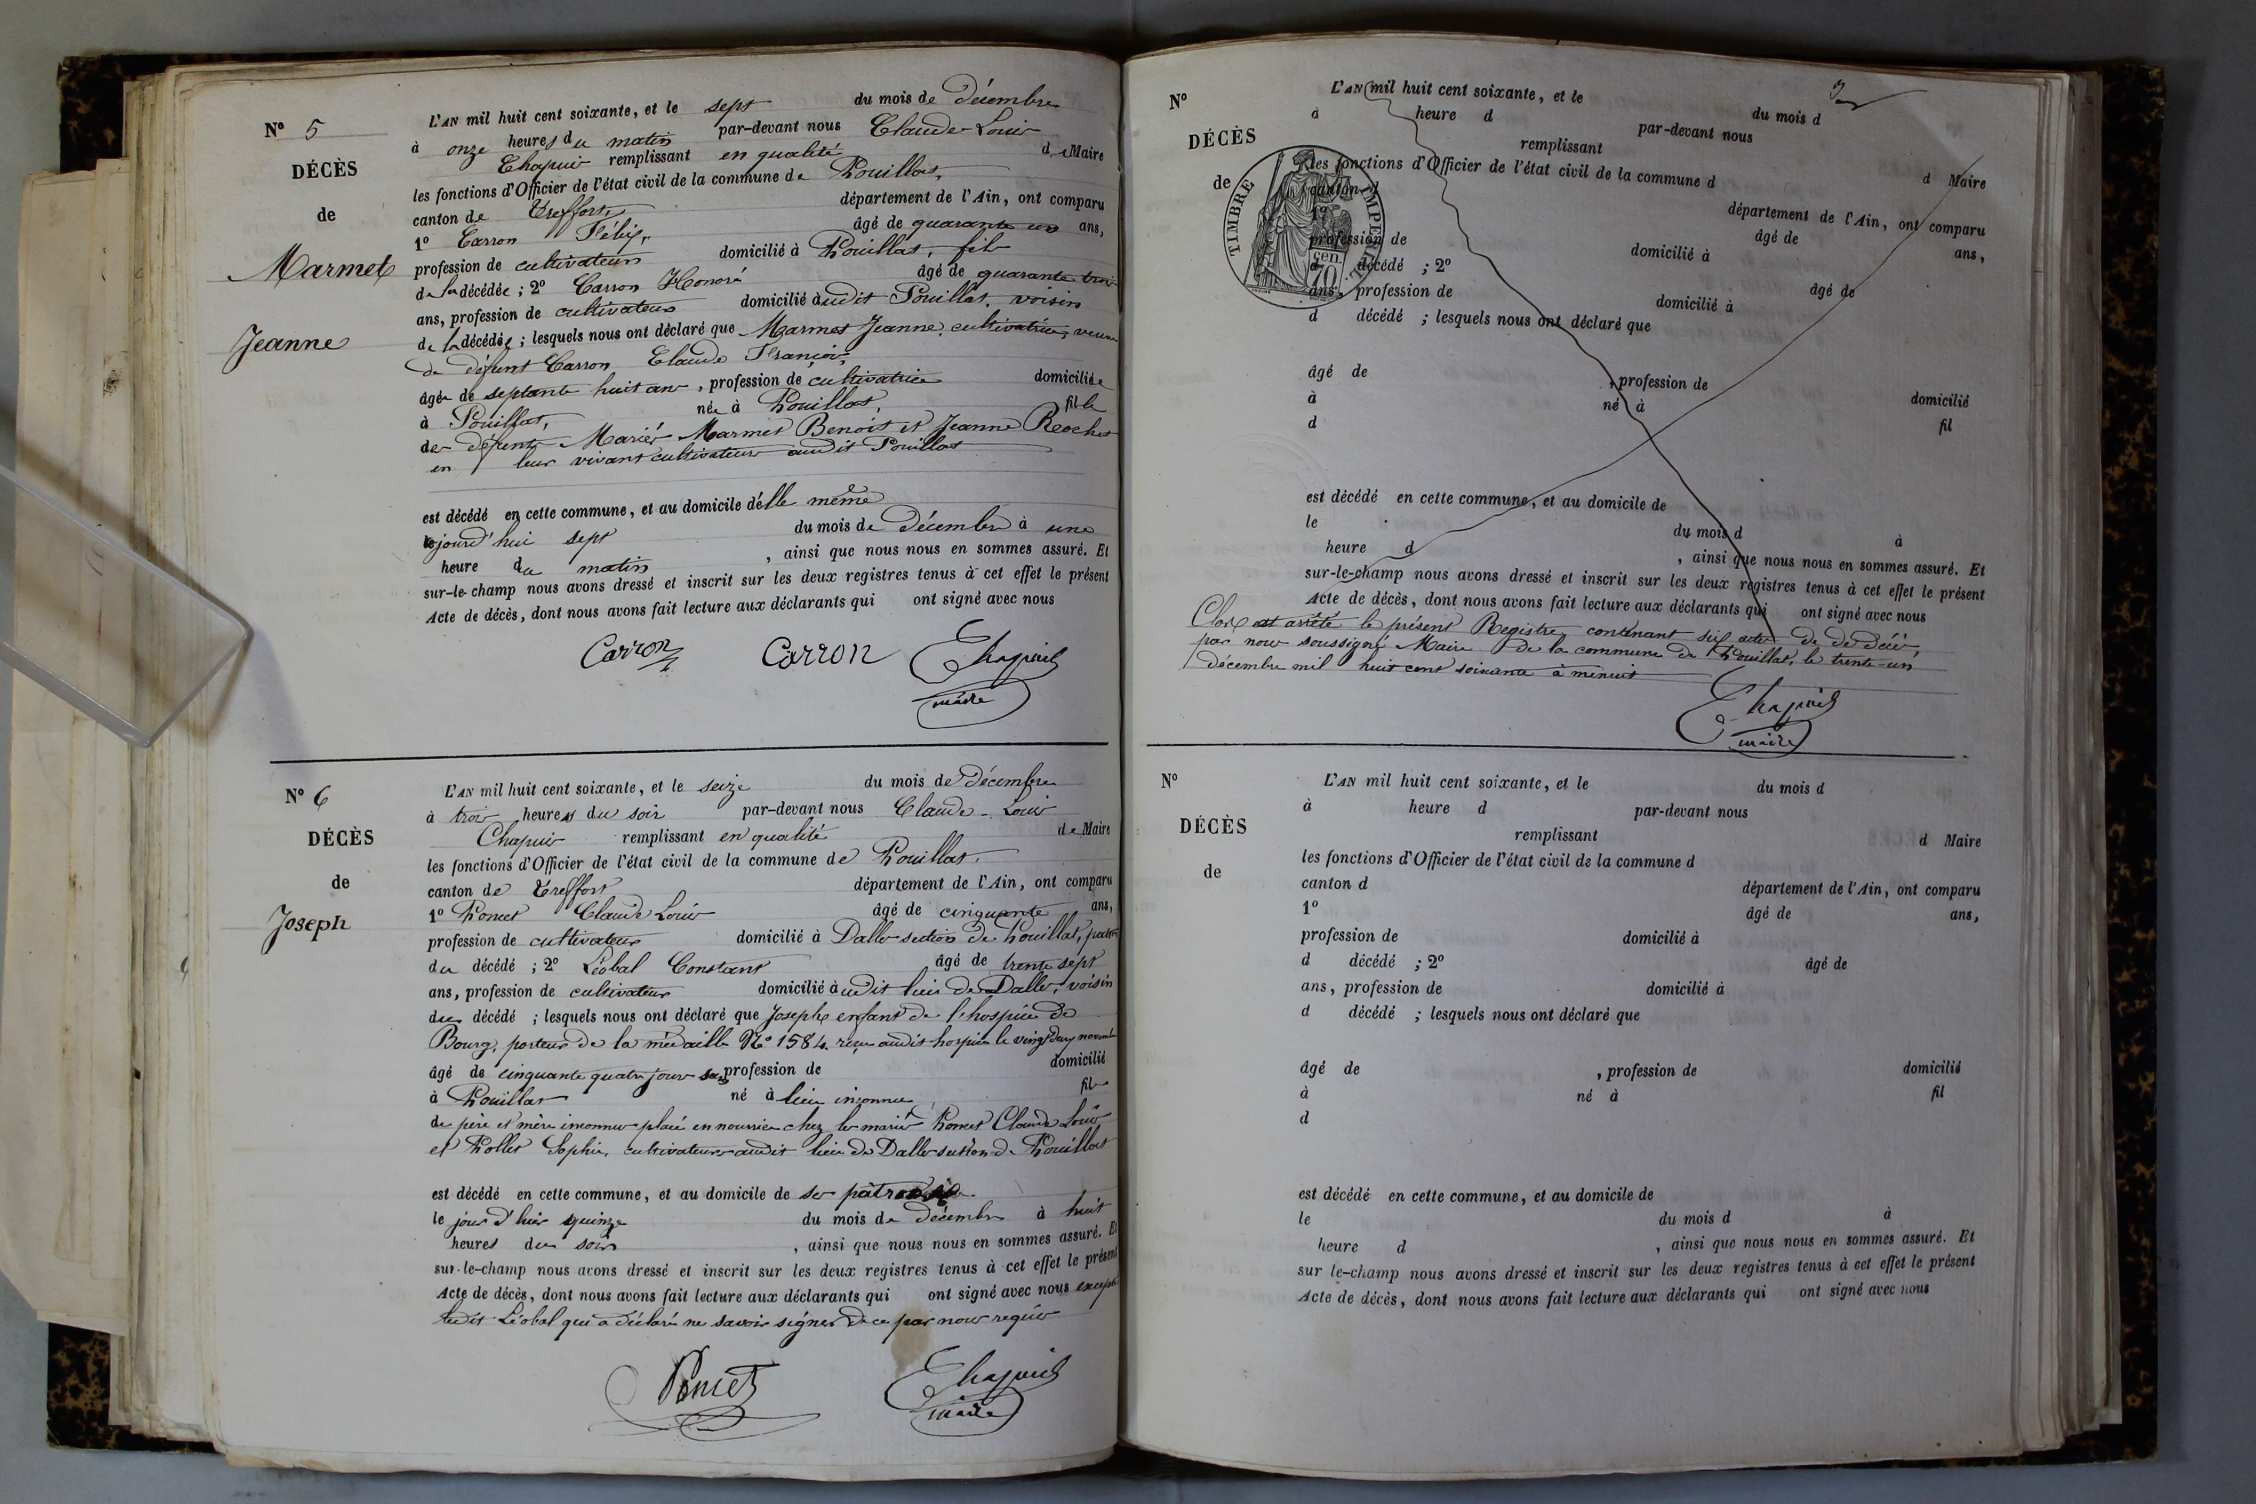 N° 5
DÉCÈS
de
Marmet
Jeanne
L'AN mil huit cent soixante, et le sept du mois de Décembre
à onze heures du matin par-devant nous Claude Louis
Chapuis remplissant en qualité de Maire
les fonctions d'Officier de l'état civil de la commune de Pouillat,
canton de Treffort, département de l'Ain, ont comparu
1° Carron Félix, âgé de quarante un ans,
profession de cultivateur domicilié à Pouillat, fils
de la décédée ; 2° Carron Honoré âgé de quarante trois
ans, profession de cultivateur domicilié audit Pouillat, voisin
de la décédée ; lesquels nous ont déclaré que Marmet Jeanne, cultivatrice, veuve
de défunt Carron Claude François,
âgée de septante huit ans, profession de cultivatrice domiciliée
à Pouillat, née à Pouillat, fille
des défunts Mariés Marmet Benoit et Jeanne Rochet
en leur vivant cultivateurs audit Pouillat
est décédé en cette commune, et au domicile d'elle même
lejourd'hui sept du mois de Décembre à une
heure du matin, ainsi que nous nous en sommes assuré. Et
sur-le-champ nous avons dressé et inscrit sur les deux registres tenus à cet effet le présent
Acte de décès, dont nous avons fait lecture aux déclarants qui ont signé avec nous
Carron Carron Chapuis
maire
N° 6
DÉCÈS
de
Joseph
L'AN mil huit cent soixante, et le seize du mois de Décembre
à trois heures du soir par-devant nous Claude-Louis
Chapuis remplissant en qualité de Maire
les fonctions d'Officier de l'état civil de la commune de Pouillat,
canton de Treffort département de l'Ain, ont comparu
1° Poncet Claude Louis âgé de cinquante ans,
profession de cultivateur domicilié à Dalles section de Pouillat, patron
du décédé ; 2° Léobal Constant âgé de trente sept
ans, profession de cultivateur domicilié audit lieu de Dalles, voisin
du décédé ; lesquels nous ont déclaré que Joseph enfant de l'hospice de
Bourg, porteur de la médaille N° 1584 reçu audit hospice le vingt deux novembre
âgé de cinquante quatre jours sans profession de domicilié
à Pouillat né à lieu inconnu, fils
de père et mère inconnus placé en nourrice chez les mariés Poncet Claude Louis
et Pollet Sophie, cultivateurs audit lieu de Dalles section de Pouillat
est décédé en cette commune, et au domicile de ses patrons
le jour d'hier quinze du mois de décembre à huit
heures du soir, ainsi que nous nous en sommes assuré. Et
sur-le-champ nous avons dressé et inscrit sur les deux registres tenus à cet effet le présent
Acte de décès, dont nous avons fait lecture aux déclarants qui ont signé avec nous excepté
ledit Léobal qui a déclaré ne savoir signer de ce par nous requis
Poncet Chapuis
maire
N°
DÉCÈS
de
TIMBRE IMPERIAL
70 cen.
L'AN mil huit cent soixante, et le du mois d
à heure d par-devant nous
remplissant d Maire
les fonctions d'Officier de l'état civil de la commune d
canton d département de l'Ain, ont comparu
1° âgé de ans,
profession de domicilié à
d décédé ; 2° âgé de
ans, profession de domicilié à
d décédé ; lesquels nous ont déclaré que
âgé de , profession de domicilié
à né à fil
d
est décédé en cette commune, et au domicile de
le du mois d à
heure d , ainsi que nous nous en sommes assuré. Et
sur-le-champ nous avons dressé et inscrit sur les deux registres tenus à cet effet le présent
Acte de décès, dont nous avons fait lecture aux déclarants qui ont signé avec nous
Clos et arrêté le présent Registre contenant six actes de décès,
par nous soussigné Maire de la commune de Pouillat, le trente-un
décembre mil huit cent soixante à minuit
Chapuis
maire
N°
DÉCÈS
de
L'AN mil huit cent soixante, et le du mois d
à heure d par-devant nous
remplissant d Maire
les fonctions d'Officier de l'état civil de la commune d
canton d département de l'Ain, ont comparu
1° âgé de ans,
profession de domicilié à
d décédé ; 2° âgé de
ans, profession de domicilié à
d décédé ; lesquels nous ont déclaré que
âgé de , profession de domicilié
à né à fil
d
est décédé en cette commune, et au domicile de
le du mois d à
heure d , ainsi que nous nous en sommes assuré. Et
sur le-champ nous avons dressé et inscrit sur les deux registres tenus à cet effet le présent
Acte de décès, dont nous avons fait lecture aux déclarants qui ont signé avec nous